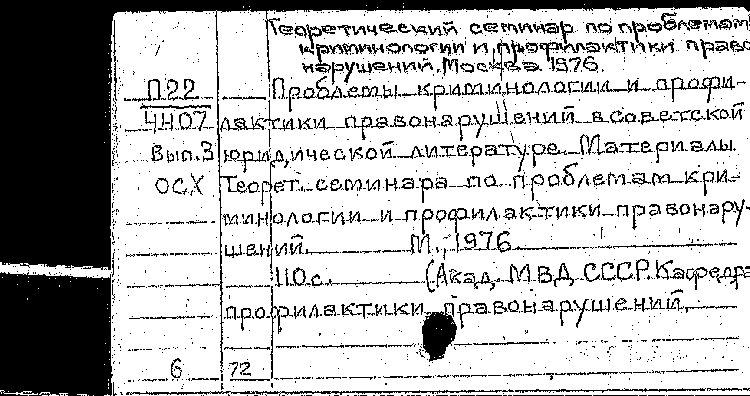 Теоретический семинар по проблемам
криминологии и профилактики право
нарушений. Москва. 1976.
П22 Проблемы криминологии и профи-
4407 лактики правонарушений в советской
Вып.3 юридической литературе. Материалы
ОСХ Теорет. семинара по проблемам кри-
минологии и профилактики правонару-
шений. М., 1976.
110с. (Акад. МВД СССР. Кафедра
профилактики правонарушений.
6 72